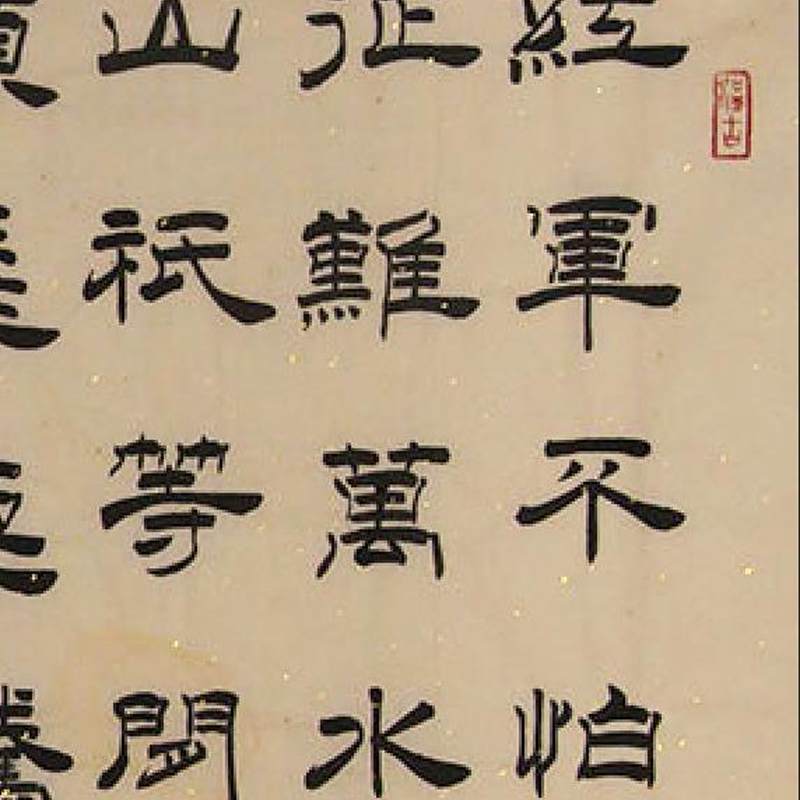 紅軍不怕
征難萬水
山祇等閒